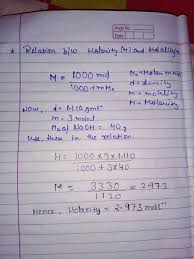 Page No.
Date
* Relation b/w Molarity (M) and Molality
M = 1000 md / 1000 + mM₀
M₀ = Molar mass
d = density
m = molality
M = Molarity
Now, d = 1.110 gml⁻¹
m = 3 molal
M₀ of NaOH = 40g
use, these in the relation.
M = 1000×3×1.110 / 1000 + 3×40
M = 3330 / 1120 = 2.973
Hence, Molarity = 2.973 mol⁻¹